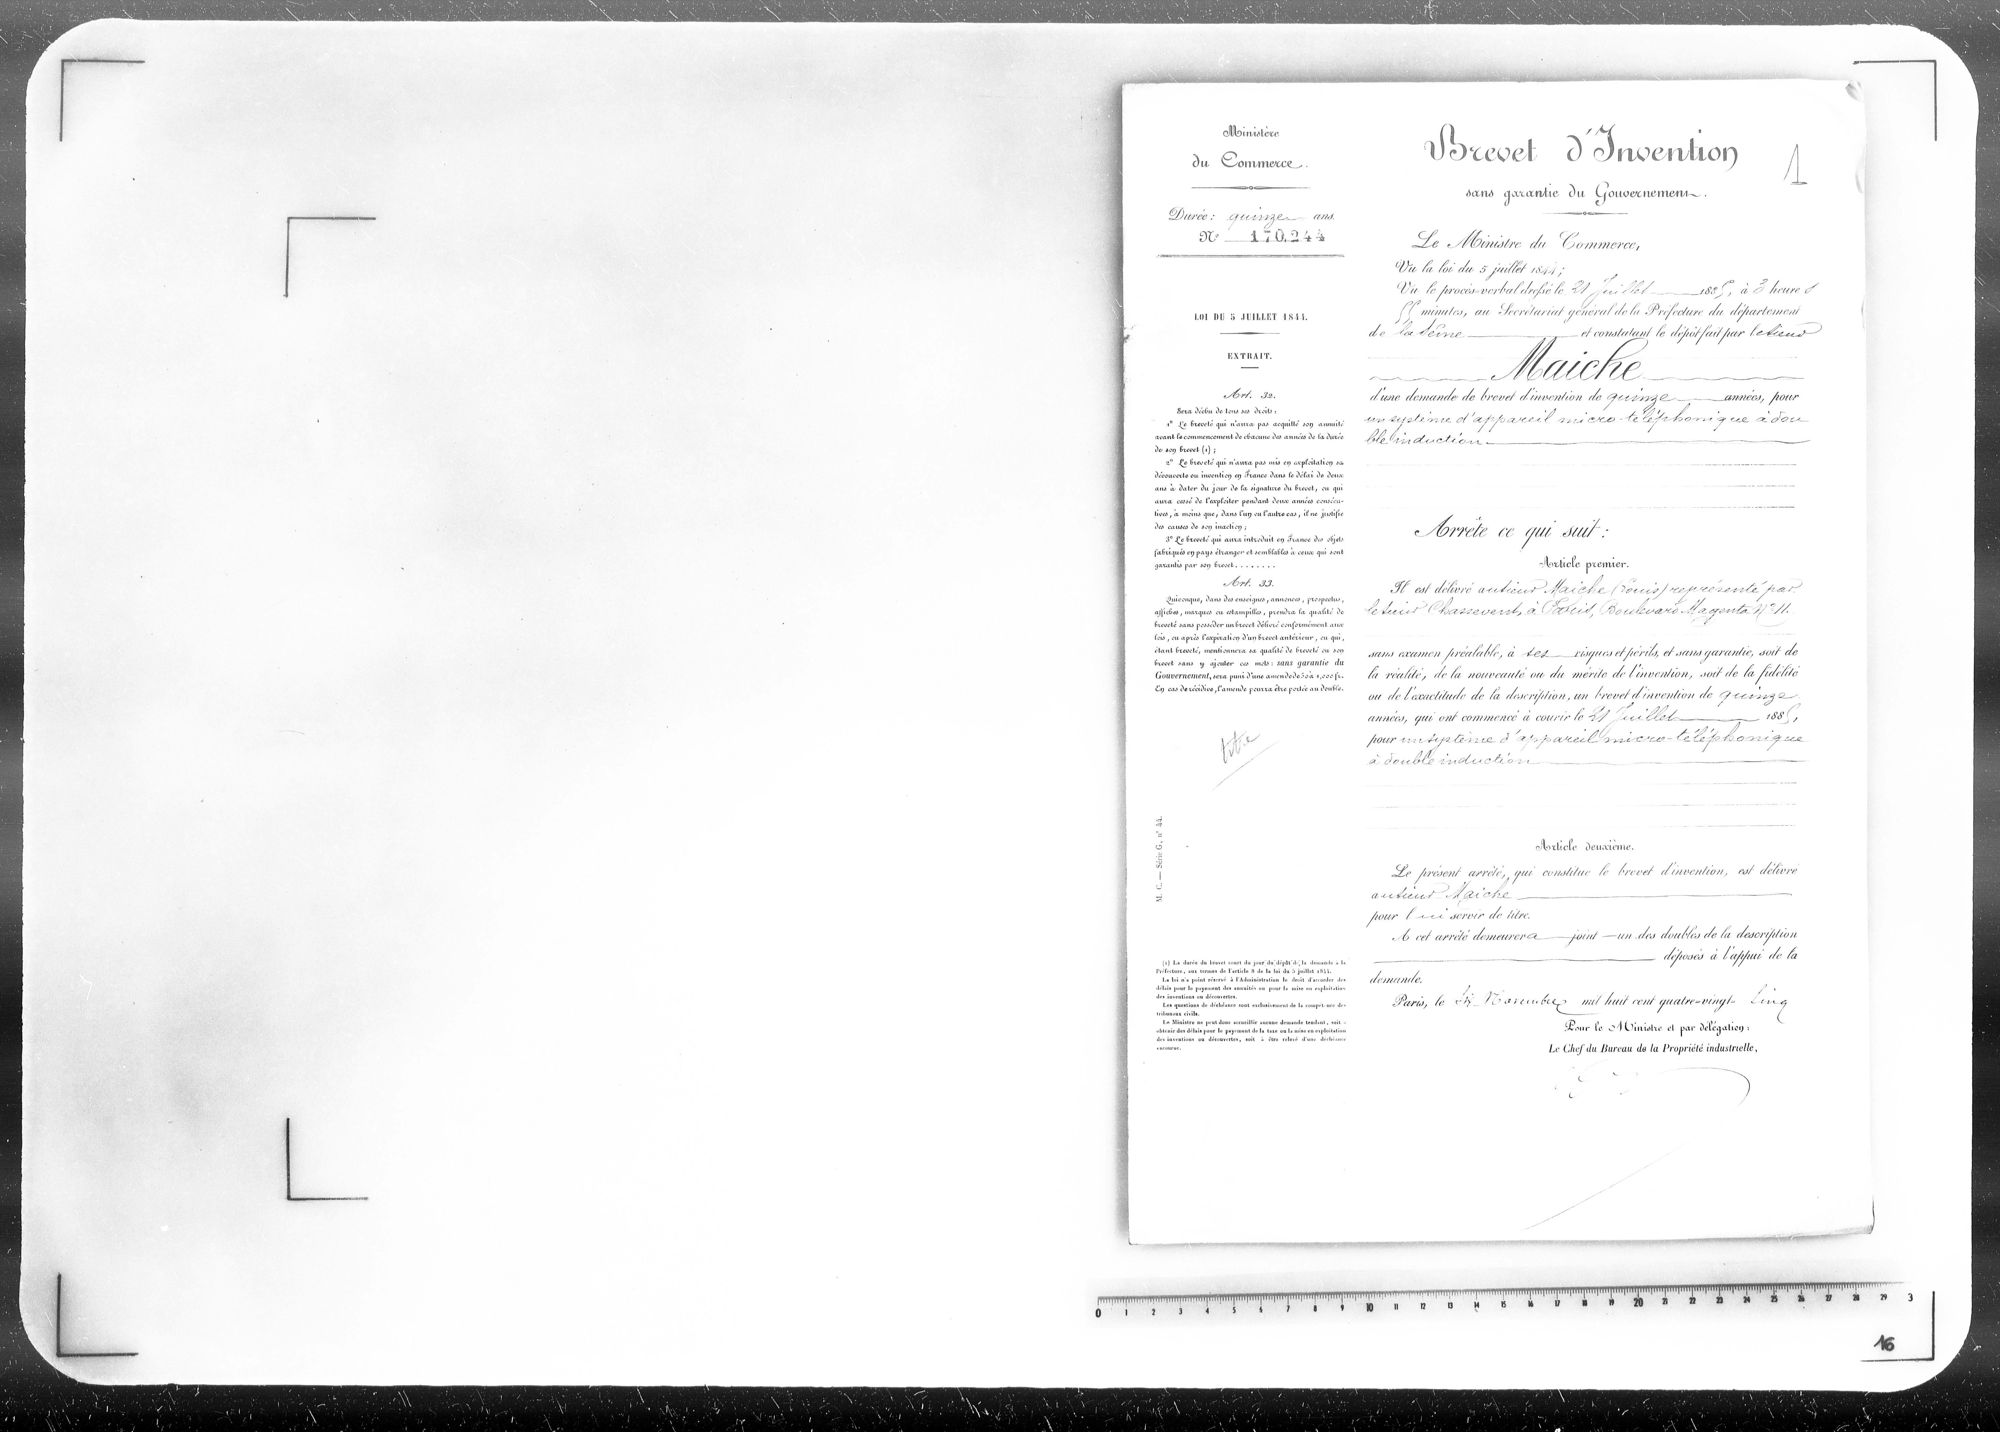 Ministère
du Commerce.
Durée : quinze ans.
N° 170,244
LOI DU 5 JUILLET 1844.
EXTRAIT.
Art. 32.
Sera déchu de tous ses droits :
1° Le breveté qui n'aura pas acquitté son annuité
avant le commencement de chacune des années de la durée
de son brevet (1) ;
2° Le breveté qui n'aura pas mis en exploitation sa
découverte ou invention en France dans le délai de deux
ans à dater du jour de la signature du brevet, ou qui
aura cessé de l'exploiter pendant deux années consécu-
tives, à moins que, dans l'un ou l'autre cas, il ne justifie
des causes de son inaction ;
3° Le breveté qui aura introduit en France des objets
fabriqués en pays étranger et semblables à ceux qui sont
garantis par son brevet........
Art. 33.
Quiconque, dans des enseignes, annonces, prospectus,
affiches, marques ou estampilles, prendra la qualité de
breveté sans posséder un brevet délivré conformément aux
lois, ou après l'expiration d'un brevet antérieur, ou qui,
étant breveté, mentionnera sa qualité de breveté ou son
brevet sans y ajouter ces mots : sans garantie du
Gouvernement, sera puni d'une amende de 50 à 1,000 fr.
En cas de récidive, l'amende pourra être portée au double.
titre
M. C. — Série G, n° 44.
(1) La durée du brevet court du jour du dépôt de la demande à la
Préfecture, aux termes de l'article 8 de la loi du 5 juillet 1844.
La loi n'a point réservé à l'Administration le droit d'accorder des
délais pour le payement des annuités ou pour la mise en exploitation
des inventions ou découvertes.
Les questions de déchéance sont exclusivement de la compétence des
tribunaux civils.
Le Ministre ne peut donc accueillir aucune demande tendant, soit à
obtenir des délais pour le payement de la taxe ou la mise en exploitation
des inventions ou découvertes, soit à être relevé d'une déchéance
encourue.
Brevet d'Invention
1
sans garantie du Gouvernement.
Le Ministre du Commerce,
Vu la loi du 5 juillet 1844 ;
Vu le procès-verbal dressé le 21 Juillet 1885, à 3 heures
55 minutes, au Secrétariat général de la Préfecture du département
de la Seine et constatant le dépôt fait par le sieur
Maiche
d'une demande de brevet d'invention de quinze années, pour
un système d'appareil micro-téléphonique à dou
ble induction
Arrête ce qui suit :
Article premier.
Il est délivré au sieur Maiche (Louis) représenté par
le sieur Chassevent, à Paris, Boulevard Magenta N° 11.
sans examen préalable, à ses risques et périls, et sans garantie, soit de
la réalité, de la nouveauté ou du mérite de l'invention, soit de la fidélité
ou de l'exactitude de la description, un brevet d'invention de quinze
années, qui ont commencé à courir le 21 Juillet 1885,
pour un système d'appareil micro-téléphonique
à double induction
Article deuxième.
Le présent arrêté, qui constitue le brevet d'invention, est délivré
au sieur Maiche
pour lui servir de titre.
A cet arrêté demeurera joint un des doubles de la description
déposés à l'appui de la
demande.
Paris, le Novembre mil huit cent quatre-vingt- cinq
Pour le Ministre et par délégation :
Le Chef du Bureau de la Propriété industrielle,
0 1 2 3 4 5 6 7 8 9 10 11 12 13 14 15 16 17 18 19 20 21 22 23 24 25 26 27 28 29 3
16